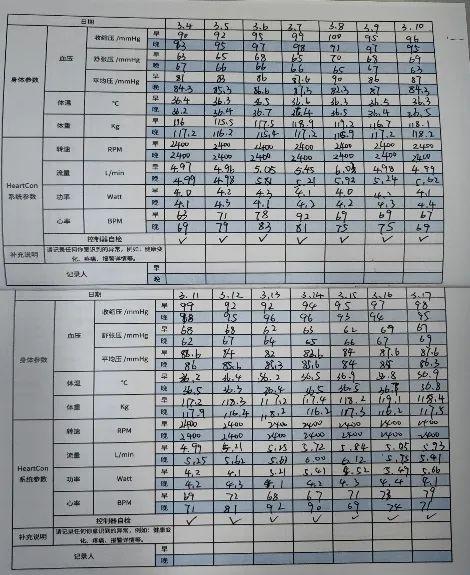 日期 3.4 3.5 3.6 3.7 3.8 3.9 3.10
身体参数 血压 收缩压/mmHg 早 90 92 95 99 100 95 96
晚 83 95 97 98 91 97 95
舒张压/mmHg 早 63 65 68 65 70 68 69
晚 67 66 66 66 65 67 63
平均压/mmHg 早 81 83 86 87.6 90 86 87
晚 84.3 85.3 86.6 87.3 82.3 87 84.3
体温 ℃ 早 36.4 36.3 36.5 36.6 36.3 36.5 36.3
晚 36.2 36.4 36.7 36.4 36.5 36.4 36.5
体重 Kg 早 116 115.5 117.5 118.9 117.2 116.7 118.1
晚 117.2 116.2 115.4 117.2 118.9 117.2 118.2
HeartCon 系统参数 转速 RPM 早 2400 2400 2400 2400 2400 2400 2400
晚 2400 2400 2400 2400 2400 2400 2400
流量 L/min 早 4.97 4.96 5.05 5.45 6.03 4.98 4.99
晚 4.99 4.98 5.81 5.21 5.92 5.24 5.62
功率 Watt 早 4.0 4.2 4.3 4.1 4.0 4.2 4.1
晚 4.1 4.3 4.1 4.2 4.2 4.3 4.4
心率 BPM 早 63 71 78 92 69 69 67
晚 69 79 83 81 75 75 69
控制器自检 ✓ ✓ ✓ ✓ ✓ ✓ ✓
补充说明 请记录任何你意识到的异常，例如：健康变化、疼痛、报警详情等。
记录人 早
晚
日期 3.11 3.12 3.13 3.14 3.15 3.16 3.17
身体参数 血压 收缩压/mmHg 早 99 92 92 94 95 97 98
晚 88 95 96 96 93 94 95
舒张压/mmHg 早 68 68 62 63 62 69 67
晚 62 67 64 65 66 67 69
平均压/mmHg 早 88.6 84 82 83.6 84 87.6 87.6
晚 86 85.6 85.3 85.6 84 85 86.3
体温 ℃ 早 36.2 36.4 36.2 36.5 36.9 36.8 36.9
晚 36.5 36.3 36.4 36.5 36.5 36.7 36.8
体重 Kg 早 117.2 118.3 117.2 117.4 118.2 119.1 118.4
晚 117.9 116.4 118.2 116.2 117.3 116.2 117.5
HeartCon 系统参数 转速 RPM 早 2400 2400 2400 2400 2400 2400 2400
晚 2400 2400 2400 2400 2400 2400 2400
流量 L/min 早 4.99 5.21 5.25 5.72 5.84 5.05
晚 5.25 5.62 5.61 6.00 6.12 5.75 5.41
功率 Watt 早 4.2 4.1 5.21 5.41 4.52 5.49 5.66
晚 4.2 4.3 4.1 4.2 4.3 4.4 4.1
心率 BPM 早 69 72 68 67 71 78 79
晚 71 81 92 90 69 74 71
控制器自检 ✓ ✓ ✓ ✓ ✓ ✓ ✓
补充说明 请记录任何你意识到的异常，例如：健康变化、疼痛、报警详情等。
记录人 早
晚